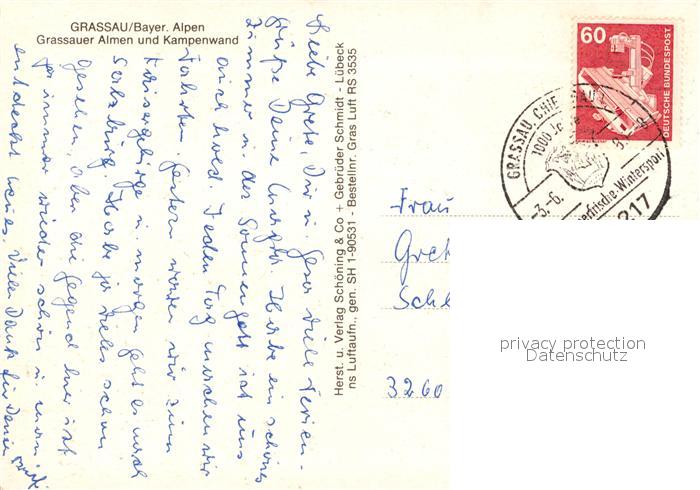 GRASSAU/Bayer. Alpen
Grassauer Almen und Kampenwand
Liebe Grete, Dir u. Gera viele Ferien-
grüße Deine Luzzi. Habe ein schönes
Zimmer u. der Sonnengott ist uns
auch hold. Jeden Tag machen wir
Fahrten, gestern waren wir zum
Kaisergebirge u. morgen geht es nach
Salzburg. Habe ja vieles schon
gesehen, aber die Gegend hier ist
ja immer wieder schön u. man
entdeckt neues. Vielen Dank für Deinen
Herst. u. Verlag Schöning & Co + Gebrüder Schmidt - Lübeck
ns Luftaufn., gen. SH 1-90531 - Bestellnr. Gras Luft RS 3535
60
DEUTSCHE BUNDESPOST
GRASSAU, CHIE
1000 Ja
-3.-6.
erfrische-Wintersport
217
Frau
Gret
Sch
3260
privacy protection
Datenschutz